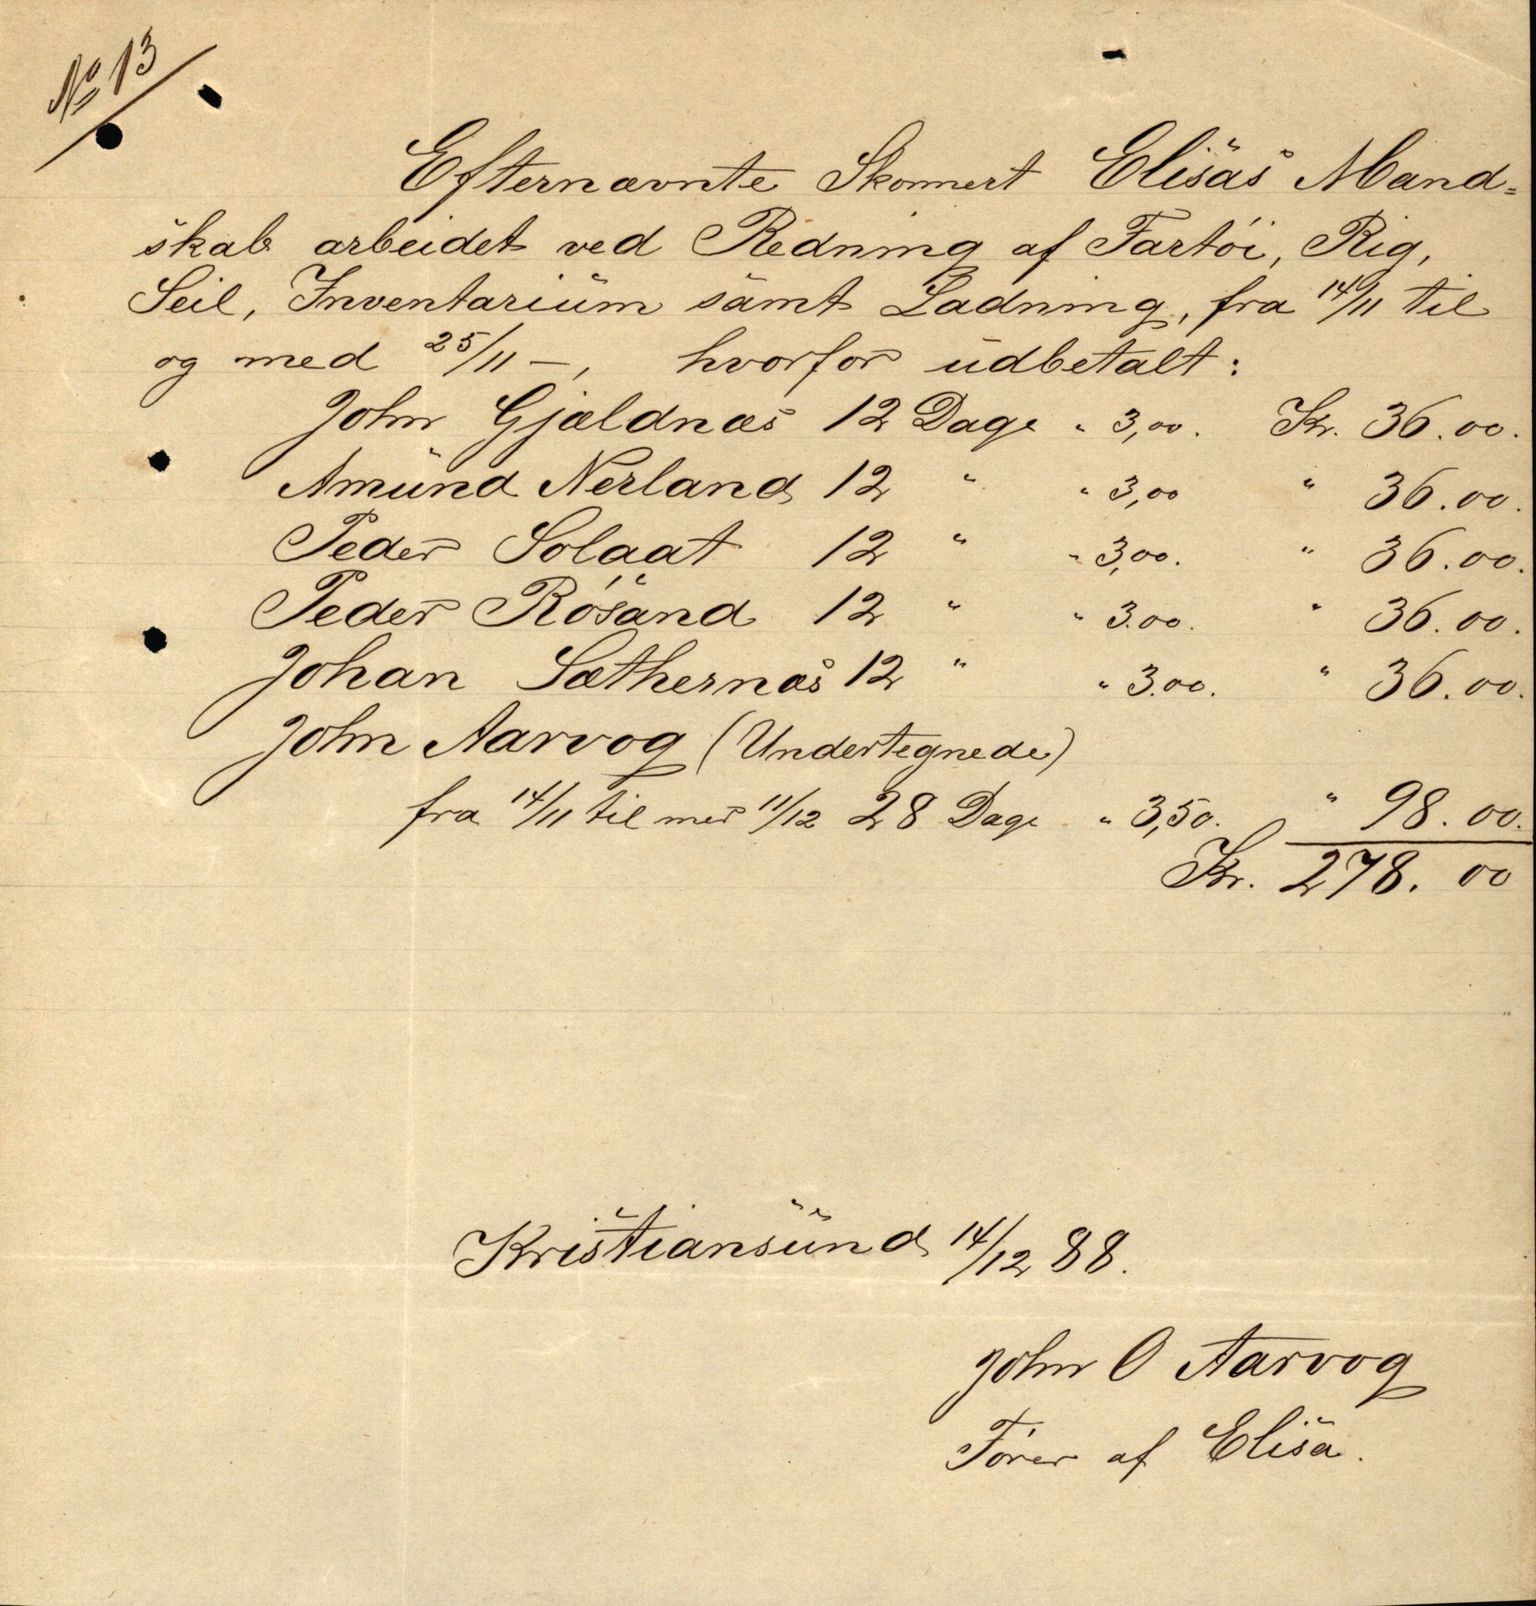 No 13
Efternævnte Skonnert Elisas Mand=
skab arbeidet ved Redning af Fartöi, Rig,
Seil, Inventarium samt Ladning, fra 14/11 til
og med 25/11 –, hvorfor udbetalt:
John Gjældnæs 12 Dage " 3,00. Kr. 36.00.
Amund Nerland 12 " " 3,00 " 36.00.
Peder Solaat 12 " " 3,00. " 36.00.
Peder Rósand 12 " " 3.00. " 36.00.
Johan Sæthernæs 12 " " 3.00. " 36.00.
John Aarvog (Undertegnede)
fra 14/11 til med 11/12 28 Dage " 3,50. " 98.00.
Kr. 278.00
Kristiansund 14/12 88.
John O Aarvog
Fórer af Elisa.